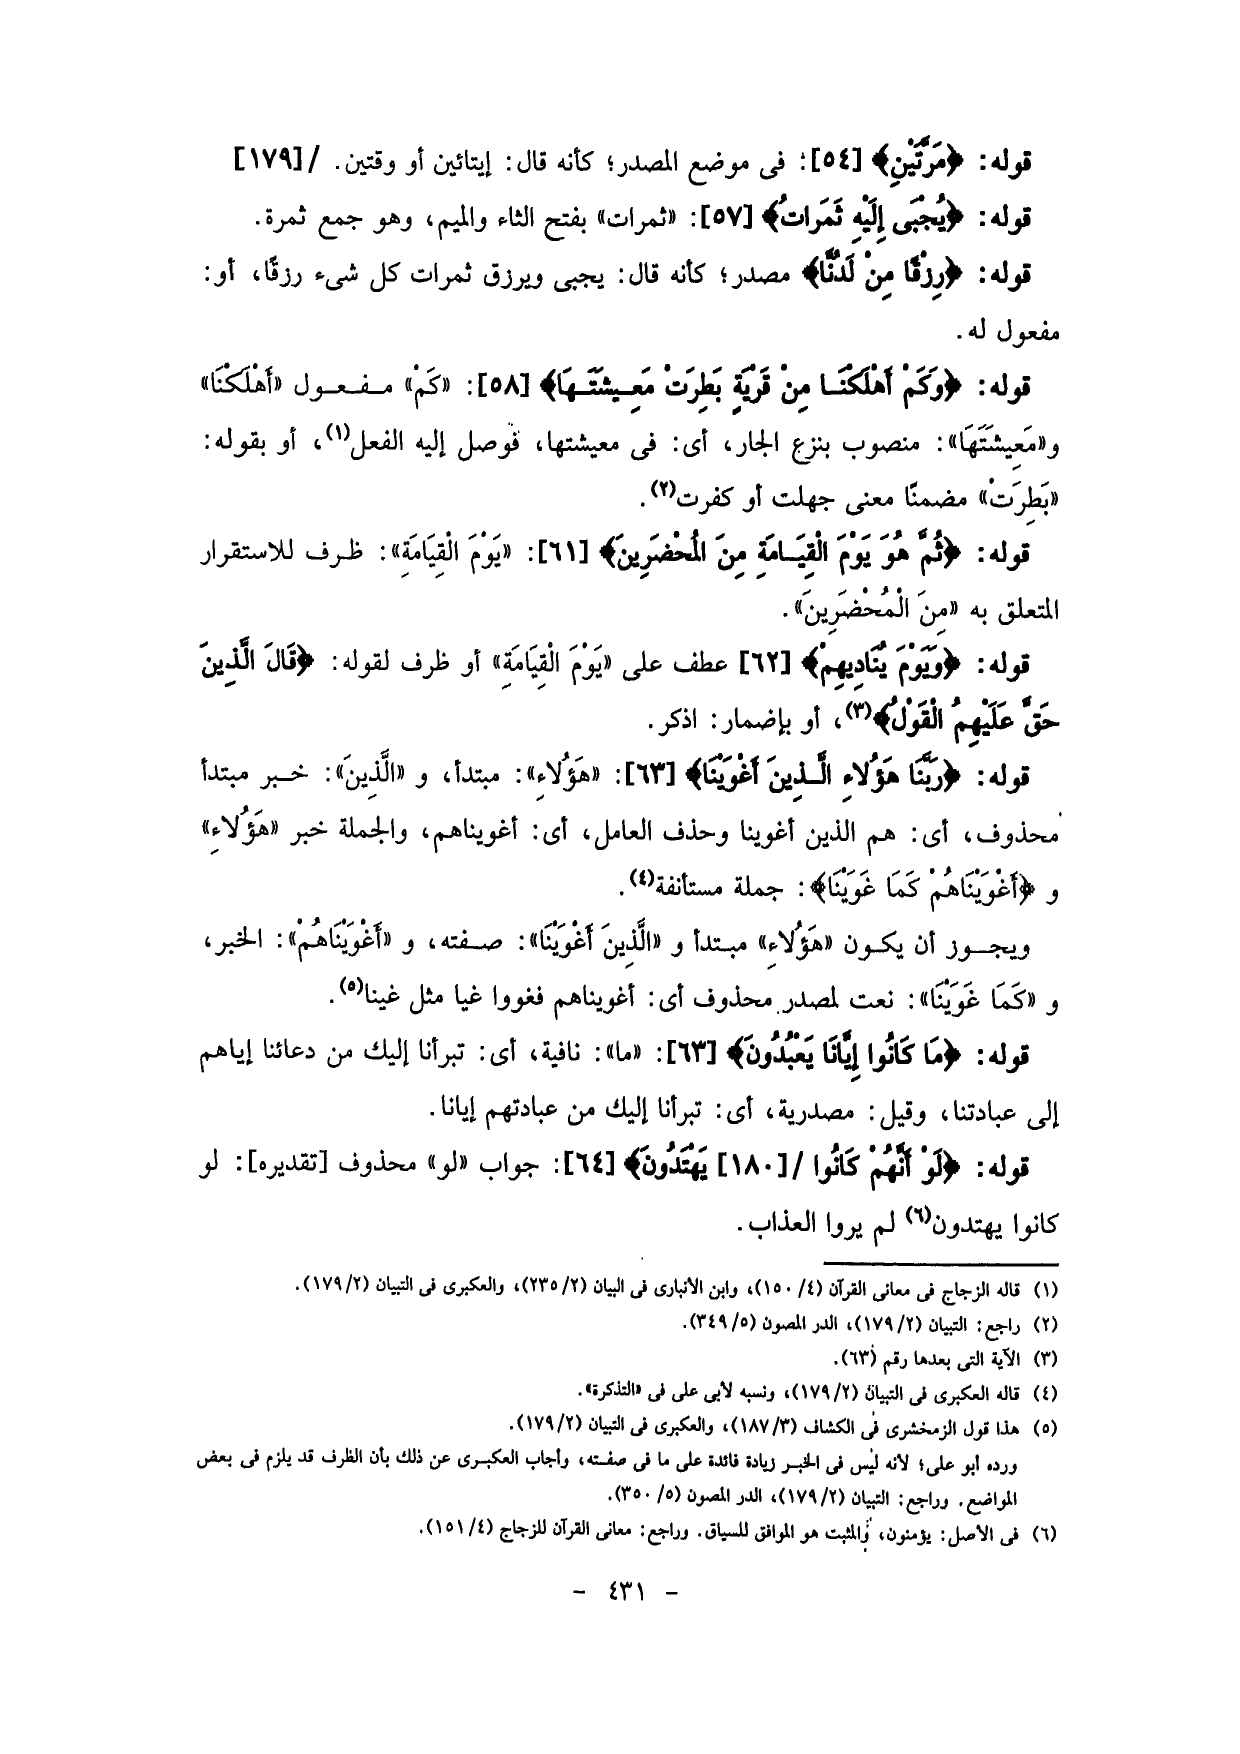 قوله: ﴿مَرَّتَيْنِ﴾ [٥٤]: فى موضع المصدر؛ كأنه قال: إيتائين أو وقتين. /[١٧٩]
قوله: ﴿يُجْبَى إِلَيْهِ ثَمَرَاتُ﴾ [٥٧]: «ثمرات» بفتح الثاء والميم، وهو جمع ثمرة.
قوله: ﴿رِزْقًا مِنْ لَدُنَّا﴾ مصدر؛ كأنه قال: يجبى ويرزق ثمرات كل شىء رزقًا، أو:
مفعول له.
قوله: ﴿وَكَمْ أَهْلَكْنَا مِنْ قَرْيَةٍ بَطِرَتْ مَعِيشَتَهَا﴾ [٥٨]: «كَمْ» مفعول «أَهْلَكْنَا»
و«مَعِيشَتَهَا»: منصوب بنزع الجار، أى: فى معيشتها، فوصل إليه الفعل(١)، أو بقوله:
«بَطِرَتْ» مضمنًا معنى جهلت أو كفرت(٢).
قوله: ﴿ثُمَّ هُوَ يَوْمَ الْقِيَامَةِ مِنَ الْمُحْضَرِينَ﴾ [٦١]: «يَوْمَ الْقِيَامَةِ»: ظرف للاستقرار
المتعلق به «مِنَ الْمُحْضَرِينَ».
قوله: ﴿وَيَوْمَ يُنَادِيهِمْ﴾ [٦٢] عطف على «يَوْمَ الْقِيَامَةِ» أو ظرف لقوله: ﴿قَالَ الَّذِينَ
حَقَّ عَلَيْهِمُ الْقَوْلُ﴾(٣)، أو بإضمار: اذكر.
قوله: ﴿رَبَّنَا هَؤُلاءِ الَّذِينَ أَغْوَيْنَا﴾ [٦٣]: «هَؤُلاءِ»: مبتدأ، و «الَّذِينَ»: خبر مبتدأ
محذوف، أى: هم الذين أغوينا وحذف العامل، أى: أغويناهم، والجملة خبر «هَؤُلاءِ»
و ﴿أَغْوَيْنَاهُمْ كَمَا غَوَيْنَا﴾: جملة مستأنفة(٤).
ويجوز أن يكون «هَؤُلاءِ» مبتدأ و «الَّذِينَ أَغْوَيْنَا»: صفته، و «أَغْوَيْنَاهُمْ»: الخبر،
و «كَمَا غَوَيْنَا»: نعت لمصدر محذوف أى: أغويناهم فغووا غيا مثل غينا(٥).
قوله: ﴿مَا كَانُوا إِيَّانَا يَعْبُدُونَ﴾ [٦٣]: «ما»: نافية، أى: تبرأنا إليك من دعائنا إياهم
إلى عبادتنا، وقيل: مصدرية، أى: تبرأنا إليك من عبادتهم إيانا.
قوله: ﴿لَوْ أَنَّهُمْ كَانُوا /[١٨٠] يَهْتَدُونَ﴾ [٦٤]: جواب «لو» محذوف [تقديره]: لو
كانوا يهتدون(٦) لم يروا العذاب.
(١) قاله الزجاج فى معانى القرآن (٤/ ١٥٠)، وابن الأنبارى فى البيان (٢/ ٢٣٥)، والعكبرى فى التبيان (٢/ ١٧٩).
(٢) راجع: التبيان (٢/ ١٧٩)، الدر المصون (٥/ ٣٤٩).
(٣) الآية التى بعدها رقم (٦٣).
(٤) قاله العكبرى فى التبيان (٢/ ١٧٩)، ونسبه لأبى على فى «التذكرة».
(٥) هذا قول الزمخشرى فى الكشاف (٣/ ١٨٧)، والعكبرى فى التبيان (٢/ ١٧٩).
ورده أبو على؛ لأنه ليس فى الخبر زيادة فائدة على ما فى صفته، وأجاب العكبرى عن ذلك بأن الظرف قد يلزم فى بعض
المواضع. وراجع: التبيان (٢/ ١٧٩)، الدر المصون (٥/ ٣٥٠).
(٦) فى الأصل: يؤمنون، والمثبت هو الموافق للسياق. وراجع: معانى القرآن للزجاج (٤/ ١٥١).
- ٤٣١ -